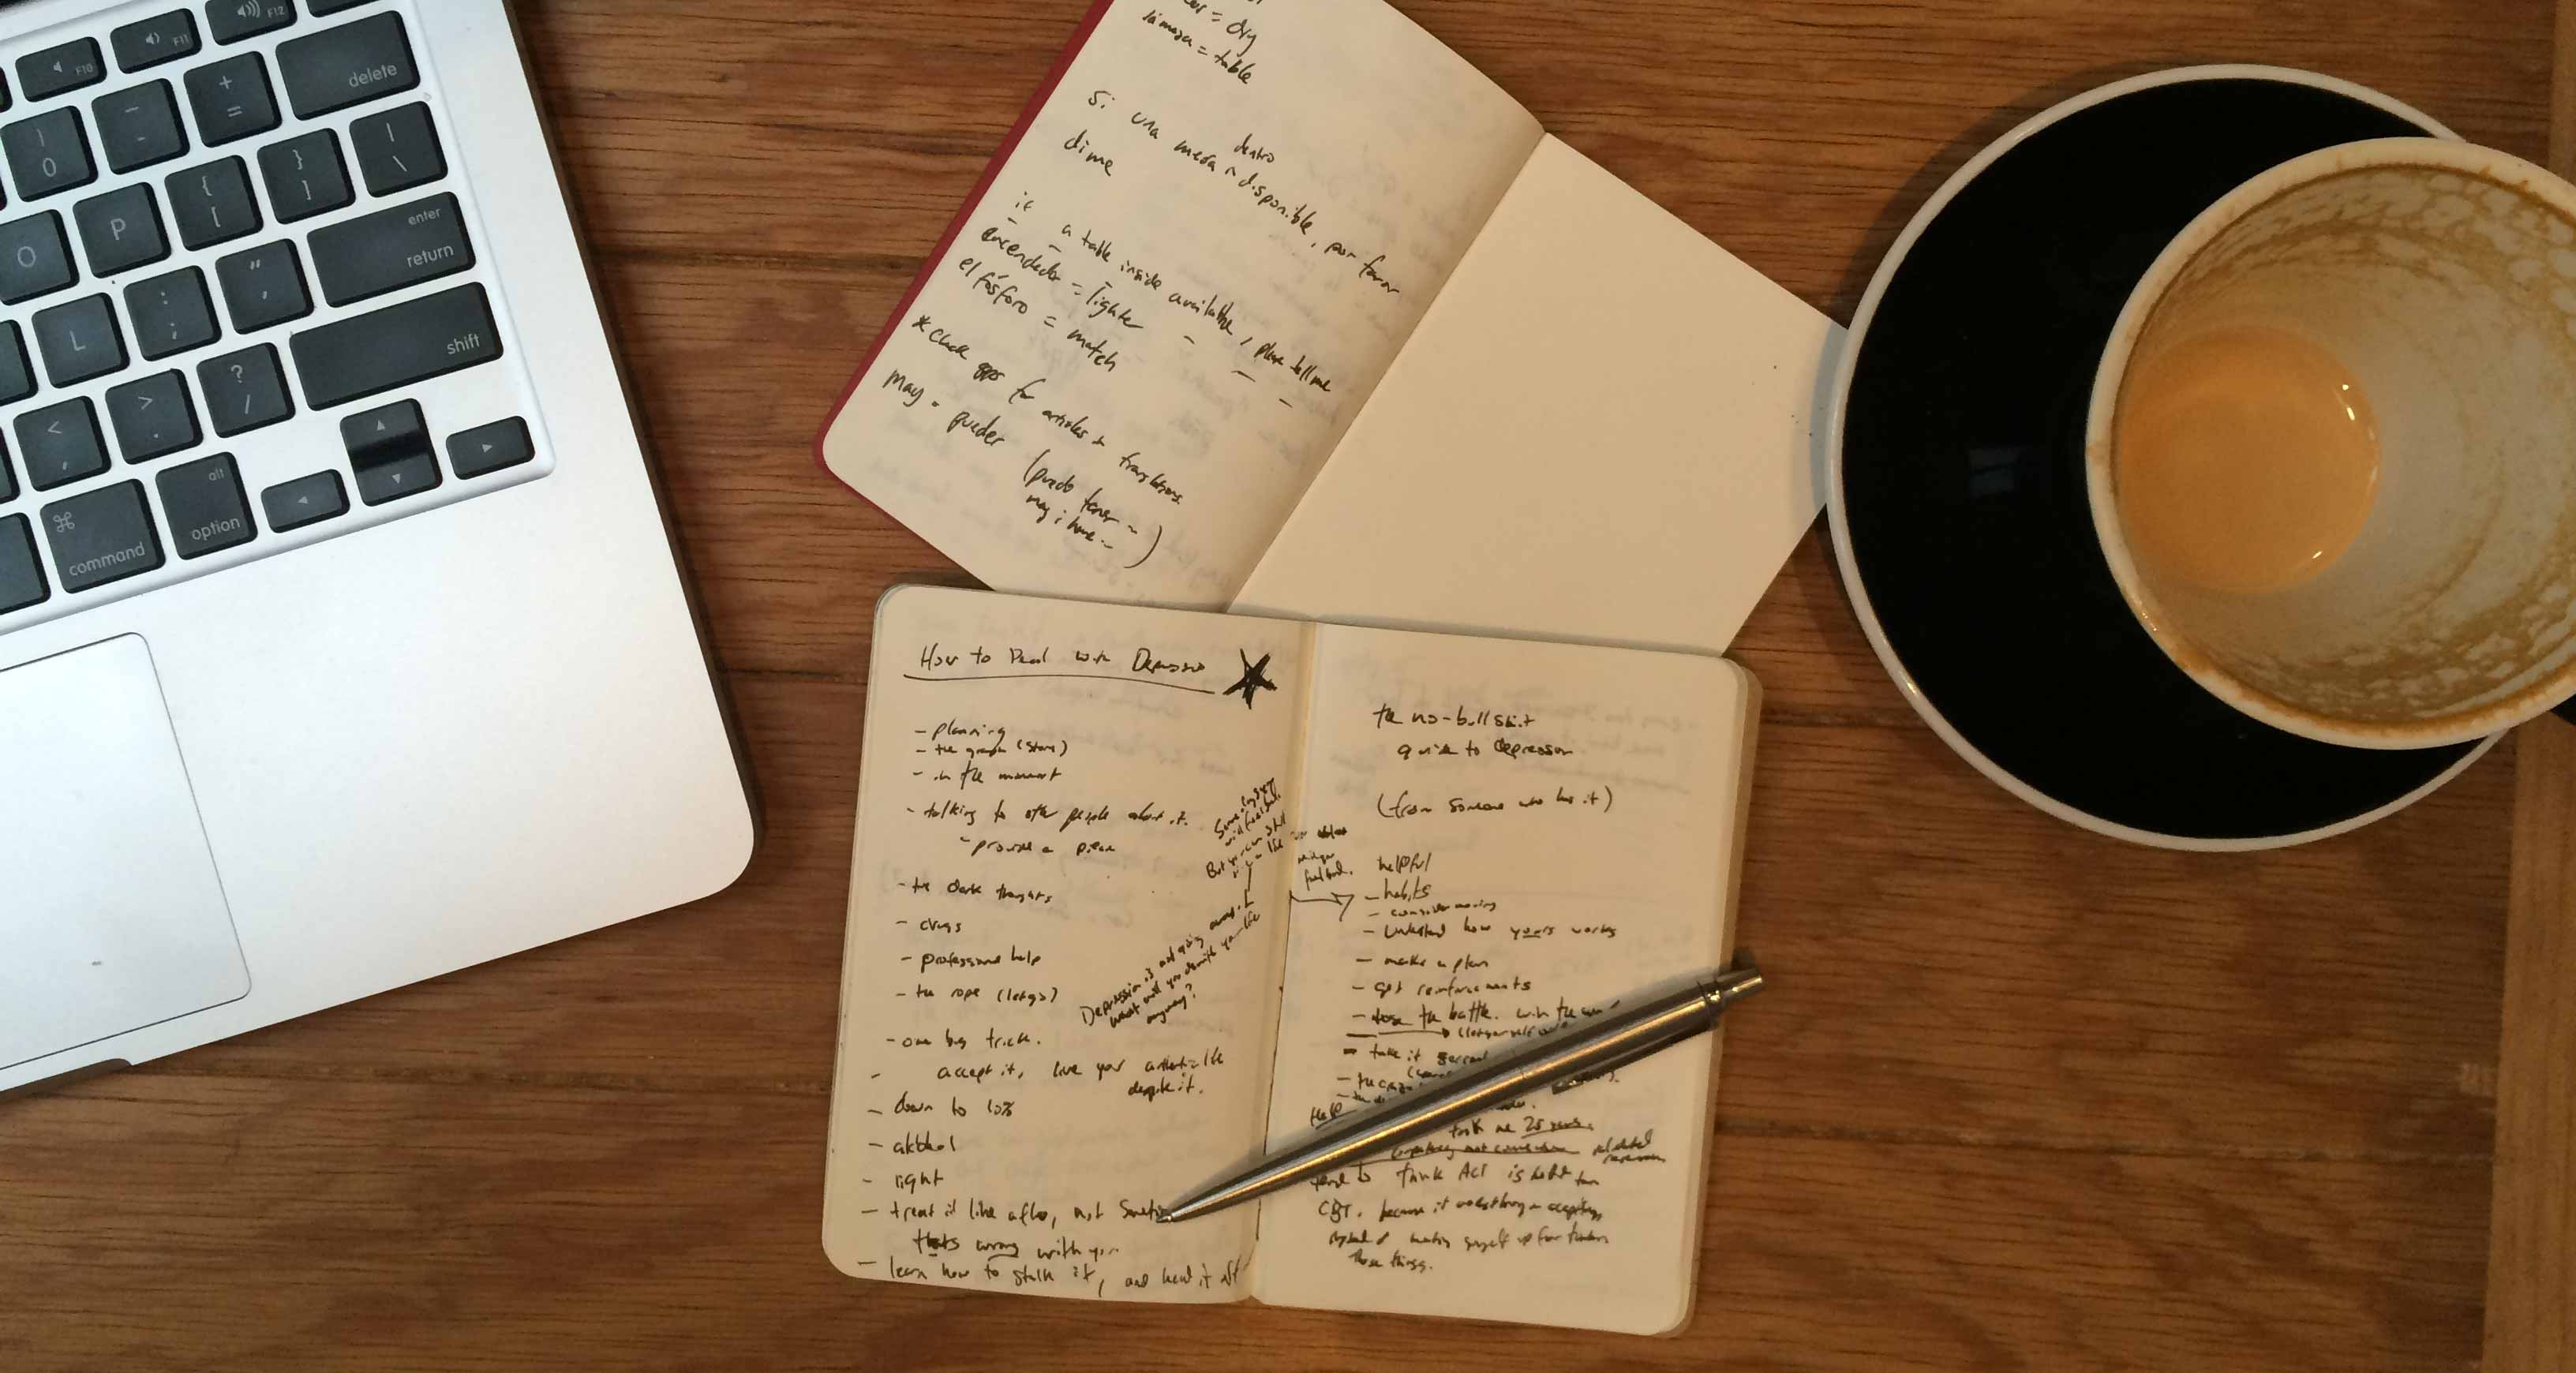 F10
F11
F12
)
0
_
-
+
=
delete
O
P
{
[
}
]
|
\
L
:
;
"
'
enter
return
<
,
>
.
?
/
shift
⌘
command
alt
option
= dry
la mesa = table
Si una mesa dentro disponible, por favor
dime
if a table inside available, please tell me
encendedor = lighter
el fósforo = match
* check apps for articles + translations
may = pueder
(puedo tener ~
may i have ~)
How to Deal with Depression
- planning
- the graph (story)
- in the moment
- talking to other people about it.
- provide a
- the dark thoughts
- drugs
- professional help
- the rope (let go)
- one big trick.
- accept it, live your authentic life
despite it.
- down to 10%
- alcohol
- light
- treat it like a flu, not
thats wrong with you
- learn how to stalk it, and head it off
Some days you
will feel bad.
But you can still
live a life
Depression is not going away.
what will you do with your life
anyway?
the no-bullshit
guide to depression
(from someone who has it)
helpful
- habits
- consider moving
- understand how yours works
- make a plan
- get reinforcements
- lose the battle. win the war
- take it
took me 25 years.
tend to think ACT is better than
CBT. because it
instead of
those things.